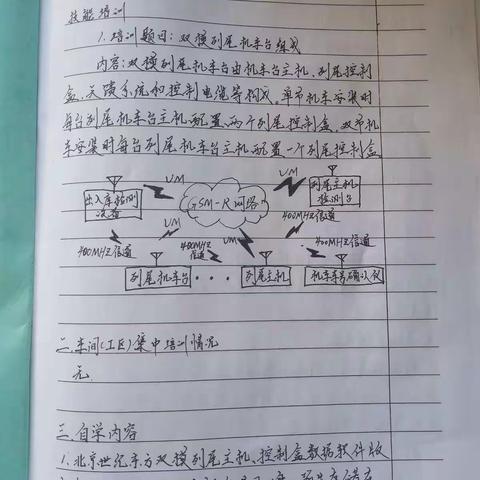 技能培训
1.培训题目：双模列尾机车台组成
内容：双模列尾机车台由机车台主机、列尾控制
盒、天馈系统和控制电缆等构成。单节机车安装时
每台列尾机车台主机配置两个列尾控制盒、双节机
车安装时每台列尾机车台主机配置一个列尾控制盒
UM UM
出入库检测设备 GSM-R网络 列尾主机检测台
UM 400MHZ信道
400MHZ信道 400MHZ信道 UM 400MHZ信道
列尾机车台 ··· 列尾主机 机车车号确认仪
二.车间(工区)集中培训情况
无
三.自学内容
1.北京世纪东方双模列尾主机、控制盒数据软件版